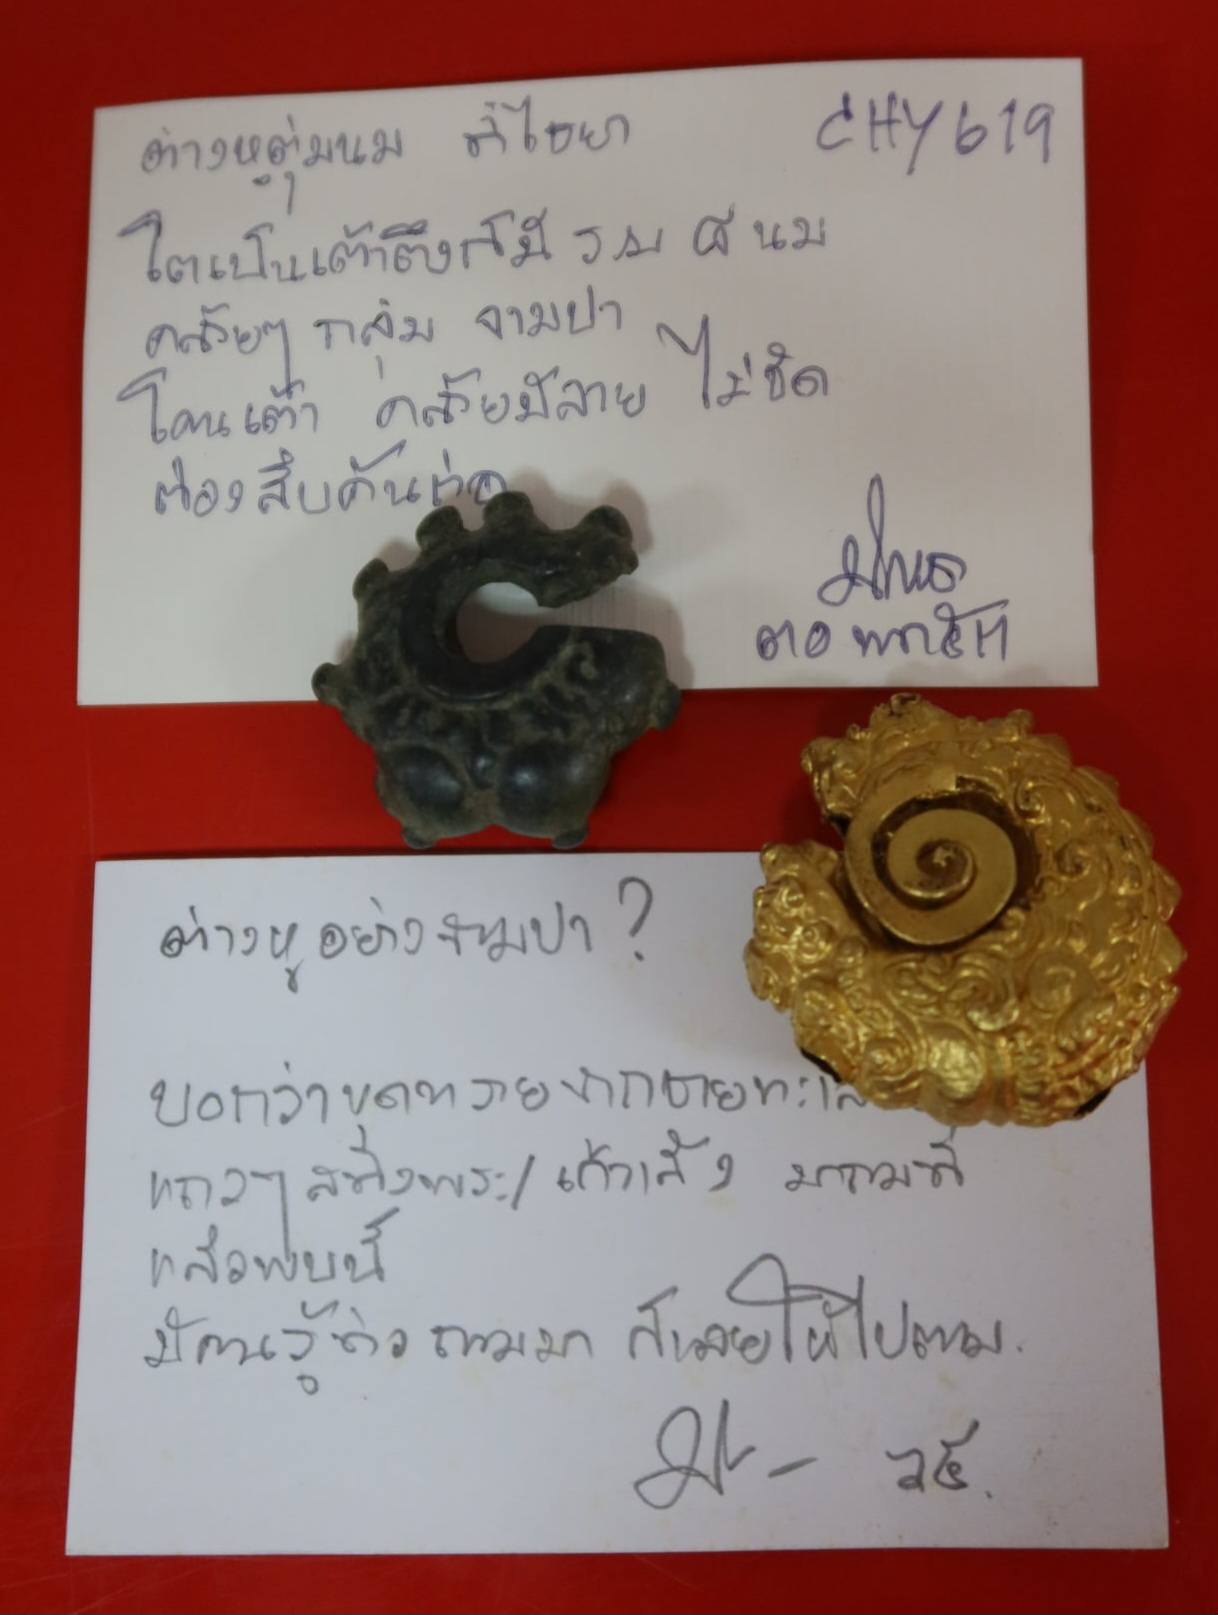 ต่างหูตุ่มนม ที่ไชยา CHY 619
โตเป็นเต้าตึงก็มี รวม ๘ นม
คล้ายๆ กลุ่ม จามปา
โคนเต้า คล้ายมีลาย ไม่ชัด
ต้องสืบค้นต่อ
ต่างหู อย่างจามปา ?
บอกว่าขุดทรายจากชายทะเล
แถวๆ สทิงพระ/ เก้าเส้ง มาถมที่
แล้วพบนี้
มีคนรู้ข่าว ตามมา ก็เลยให้ไปตาม.